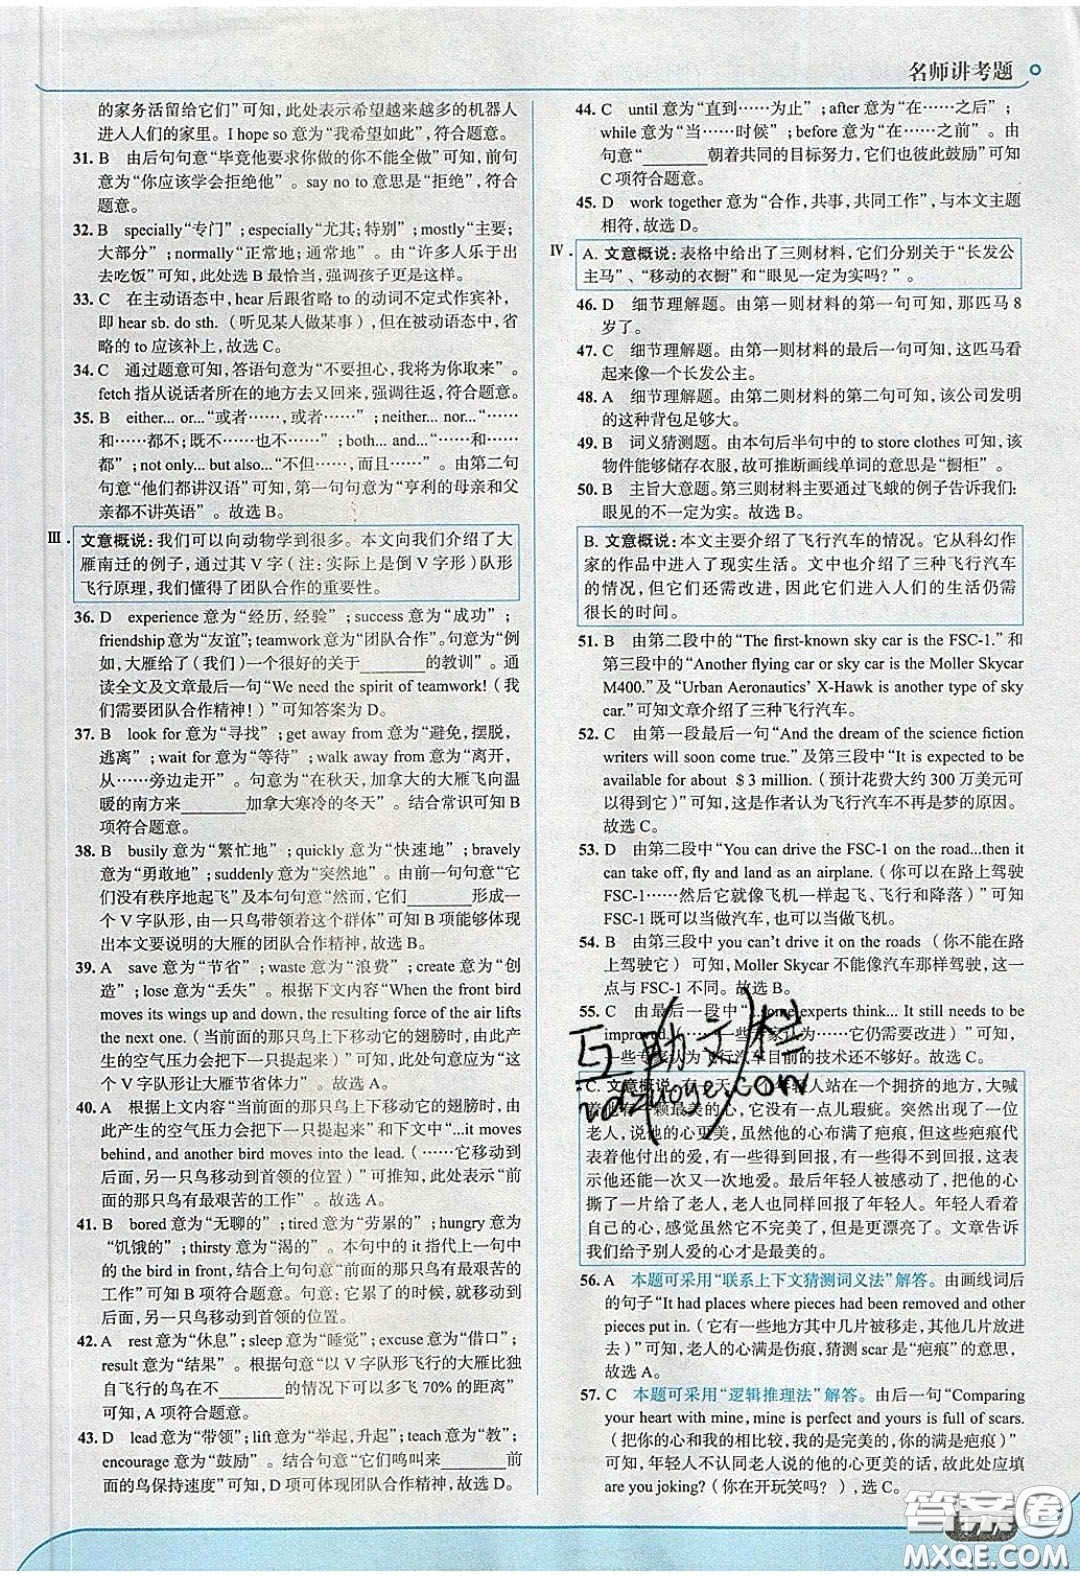 名师讲考题
的家务活留给它们”可知，此处表示希望越来越多的机器人
进入人们的家里。I hope so 意为“我希望如此”，符合题意。
31. B 由后句句意“毕竟他要求你做的你不能全做”可知，前句
意为“你应该学会拒绝他”。say no to 意思是“拒绝”，符合
题意。
32. B specially“专门”；especially“尤其；特别”；mostly“主要；
大部分”；normally“正常地；通常地”。由“许多人乐于出
去吃饭”可知，此处选 B 最恰当，强调孩子更是这样。
33. C 在主动语态中，hear 后跟省略 to 的动词不定式作宾补，
即 hear sb. do sth.（听见某人做某事），但在被动语态中，省
略的 to 应该补上，故选 C。
34. C 通过题意可知，答语句意为“不要担心，我将为你取来”。
fetch 指从说话者所在的地方去又回来，强调往返，符合题意。
35. B either... or...“或者……，或者……”；neither... nor...“……
和……都不；既不……也不……”；both... and...“……和……
都”；not only... but also...“不但……，而且……”。由第二句
句意“他们都讲汉语”可知，第一句句意为“亨利的母亲和父
亲都不讲英语”。故选 B。
Ⅲ. 文意概说：我们可以向动物学到很多。本文向我们介绍了大
雁南迁的例子，通过其 V 字（注：实际上是倒 V 字形）队形
飞行原理，我们懂得了团队合作的重要性。
36. D experience 意为“经历，经验”；success 意为“成功”；
friendship 意为“友谊”；teamwork 意为“团队合作”。句意为“例
如，大雁给了（我们）一个很好的关于______的教训”。通
读全文及文章最后一句“We need the spirit of teamwork!（我
们需要团队合作精神！）”可知答案为 D。
37. B look for 意为“寻找”；get away from 意为“避免，摆脱，
逃离”；wait for 意为“等待”；walk away from 意为“离开，
从……旁边走开”。句意为“在秋天，加拿大的大雁飞向温
暖的南方来______加拿大寒冷的冬天”。结合常识可知 B
项符合题意。
38. B busily 意为“繁忙地”；quickly 意为“快速地”；bravely
意为“勇敢地”；suddenly 意为“突然地”。由前一句句意“它
们没有秩序地起飞”及本句句意“然而，它们______形成一
个 V 字队形，由一只鸟带领着这个群体”可知 B 项能够体现
出本文要说明的大雁的团队合作精神，故选 B。
39. A save 意为“节省”；waste 意为“浪费”；create 意为“创
造”；lose 意为“丢失”。根据下文内容“When the front bird
moves its wings up and down, the resulting force of the air lifts
the next one.（当前面的那只鸟上下移动它的翅膀时，由此产
生的空气压力会把下一只提起来）”可知，此处句意应为“这
个 V 字队形让大雁节省体力”。故选 A。
40. A 根据上文内容“当前面的那只鸟上下移动它的翅膀时，
由此产生的空气压力会把下一只提起来”和下文中“...it moves
behind, and another bird moves into the lead.（……它移动到
后面，另一只鸟移动到领导的位置）”可推知，此处表示“前
面的那只鸟有最艰苦的工作”。故选 A。
41. B bored 意为“无聊的”；tired 意为“劳累的”；hungry 意为
“饥饿的”；thirsty 意为“渴的”。本句中的 it 指代上一句中
的 the bird in front，结合上句句意“前面的那只鸟有最艰苦的
工作”可知 B 项符合题意。句意：它累了的时候，就移动到
后面，另一只鸟移动到首领的位置。
42. A rest 意为“休息”；sleep 意为“睡觉”；excuse 意为“借口”；
result 意为“结果”。根据句意“以 V 字队形飞行的大雁比独
自飞行的鸟在不______的情况下可以多飞 70% 的距离”
可知，A 项符合题意。
43. D lead 意为“带领”；lift 意为“举起，升起”；teach 意为“教”；
encourage 意为“鼓励”。结合句意“它们鸣叫来______前
面的鸟保持速度”可知，D 项可体现团队合作精神，故选 D。
44. C until 意为“直到……为止”；after 意为“在……之后”；
while 意为“当……时候”；before 意为“在……之前”。由
句意“______朝着共同的目标努力，它们也彼此鼓励”可知
C 项符合题意。
45. D work together 意为“合作，共事，共同工作”，与本文主题
相符，故选 D。
Ⅳ. A. 文意概说：表格中给出了三则材料，它们分别关于“长发公
主马”、“移动的衣橱”和“眼见一定为实吗？”。
46. D 细节理解题。由第一则材料的第一句可知，那匹马 8
岁了。
47. C 细节理解题。由第一则材料的最后一句可知，这匹马看
起来像一个长发公主。
48. A 细节理解题。由第二则材料的第二句可知，该公司发明
的这种背包足够大。
49. B 词义猜测题。由本句后半句中的 to store clothes 可知，该
物件能够储存衣服，故可推断画线单词的意思是“橱柜”。
50. B 主旨大意题。第三则材料主要通过飞蛾的例子告诉我们：
眼见的不一定为实。故选 B。
B. 文意概说：本文主要介绍了飞行汽车的情况。它从科幻作
家的作品中进入了现实生活。文中也介绍了三种飞行汽车
的情况，但它们还需改进，因此它们进入人们的生活仍需
很长的时间。
51. B 由第二段中的“The first-known sky car is the FSC-1.”和
第三段中的“Another flying car or sky car is the Moller Skycar
M400.”及“Urban Aeronautics’ X-Hawk is another type of sky
car.”可知文章介绍了三种飞行汽车。
52. C 由第一段最后一句“And the dream of the science fiction
writers will soon come true.”及第三段中“It is expected to be
available for about ＄3 million.（预计花费大约 300 万美元可
以得到它）”可知，这是作者认为飞行汽车不再是梦的原因。
故选 C。
53. D 由第二段中“You can drive the FSC-1 on the road...then it
can take off, fly and land as an airplane.（你可以在路上驾驶
FSC-1……然后它就像飞机一样起飞、飞行和降落）”可知
FSC-1 既可以当做汽车，也可以当做飞机。
54. B 由第三段中 you can’t drive it on the roads（你不能在路
上驾驶它）可知，Moller Skycar 不能像汽车那样驾驶，这一
点与 FSC-1 不同。故选 B。
55. C 由最后一段中“...some experts think... It still needs to be
improved.……一些专家认为……它仍需要改进）”可知，
一些专家认为飞行汽车目前的技术还不够好。故选 C。
C. 文意概说：有一天，一个年轻人站在一个拥挤的地方，大喊
着他有一颗最美的心，它没有一点儿瑕疵。突然出现了一位
老人，说他的心更美，虽然他的心布满了疤痕，但这些疤痕代
表着他付出的爱，有一些得到回报，有一些没有得到回报，这表
示他还能一次又一次地爱。最后年轻人被感动了，把他的心
撕了一片给了老人，老人也同样回报了年轻人。年轻人看着
自己的心，感觉虽然它不完美了，但是更漂亮了。文章告诉
我们给予别人爱的心才是最美的。
56. A 本题可采用“联系上下文猜测词义法”解答。由画线词后
的句子“It had places where pieces had been removed and other
pieces put in.（它有一些地方其中几片被移走，其他几片放进
去）”可知，老人的心满是伤痕，猜测 scar 是“疤痕”的意思，
故选 A。
57. C 本题可采用“逻辑推理法”解答。由后一句“Comparing
your heart with mine, mine is perfect and yours is full of scars.
（把你的心和我的相比较，我的是完美的，你的满是疤痕）”
可知，年轻人不认同老人说的他的心更美的话，因此处应填
are you joking?（你在开玩笑吗？），选 C。
互助文档
hdzuoye.com
答案圈
MXQE.COM